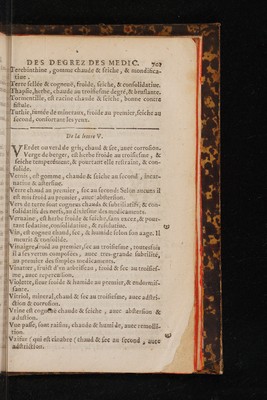 DES DEGREZ DES MEDIC. 707
Terebinthine, gomme chaude & seiche, & mondifica-
tiue.
Terre sellée & cogneuë, froide, seiche, & consolidatiue.
Thapsie, herbe, chaude au troisiesme degré, & bruslante.
Tormentille, est racine chaude & seiche, bonne contre
fistule.
Turbie, fumée de mineraux, froide au premier, seiche au
second, confortant les yeux.
De la lettre V.
VErdet ou verd de gris, chaud & sec, auec corrosion.
Verge de berger, est herbe froide au troisiesme, &
seiche temperément, & pourtant elle restraint, & con-
solide.
Vernis, est gomme, chaude & seiche au second, incar-
natiue & abstersiue.
Verre chaud au premier, sec au second: Selon aucuns il
est mis froid au premier, auec abstersion.
Vers de terre sont cogneus chauds & subtiliatifs, & con-
solidatifs des nerfs, au dixiesme des medicaments.
Veruaine, est herbe froide & seiche, sans excez, & pour-
tant sudatiue, consolidatiue, &
Vin, est cogneu chaud, sec, & humide selon son aage. Il
nourrit & consolide.
Vinaigre froid au premier, sec au troisiesme, toutesfois
il a ses vertus composées, auec tres-grande subtilité,
au premier des simples medicaments.
fruict d'vn arbrisseau, froid & sec au troisies-
me, auec repercussion.
Violette, fleur froide & humide au premier, & endormis-
sante.
Vitriol, mineral, chaud & sec au troisiesme, auec adstri-
ction & corrosion.
Vrine est cogneuë chaude & seiche, auec abstersion &
adustion.
passe, sont raisins, chauds & humides, auec remolli-
tion.
qui est chaud & sec au second, auec
adstriction.